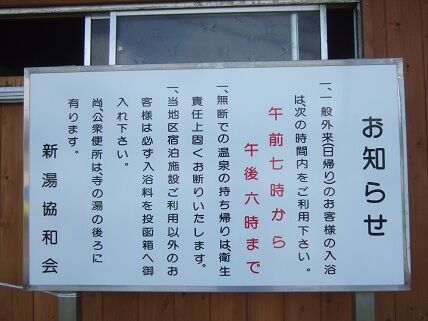 お知らせ
一、一般外来(日帰り)のお客様の入浴
は、次の時間内をご利用下さい。
午前七時から
午後六時まで
一、無断での温泉の持ち帰りは、衛生
責任上固くお断りいたします。
一、当地区宿泊施設ご利用以外のお
客様は必ず入浴料を投函箱へ御
入れ下さい。
尚、公衆便所は寺の湯の後ろに
有ります。
新湯協和会